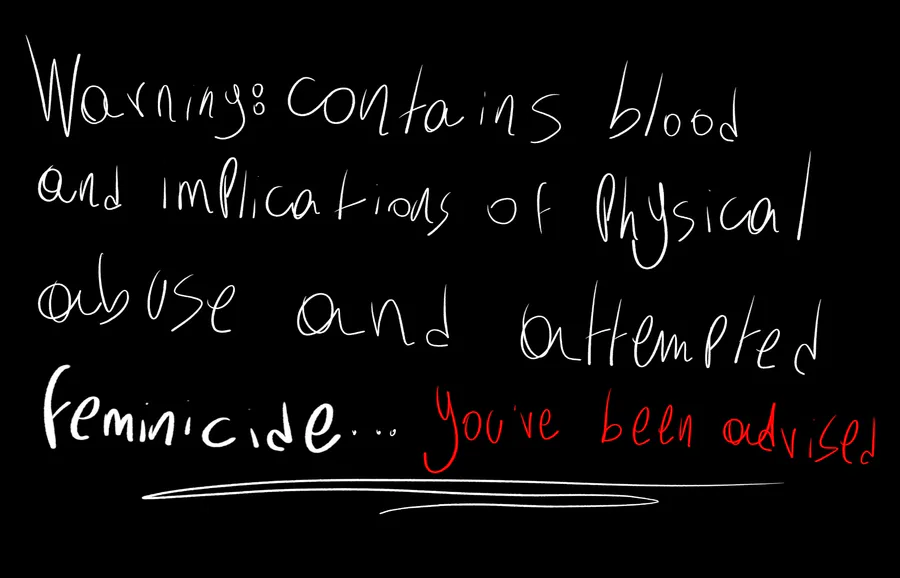 Warning: contains blood
and implications of Physical
abuse and attempted
feminicide... you've been advised